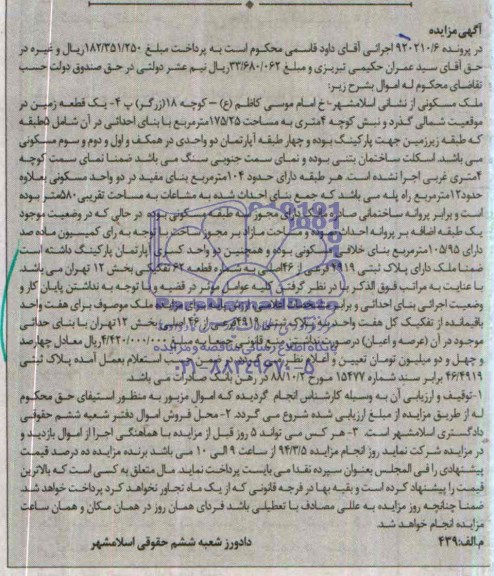 آگهی مزایده
در پرونده ۹۲۰۲۱۰/۶ اجرائی آقای داود قاسمی محکوم است به پرداخت مبلغ ۱۸۲/۳۵۱/۲۵۰ریال و غیره در
حق آقای سید عمران حکیمی تبریزی و مبلغ ۳۳/۶۸۰/۰۶۲ریال نیم عشر دولتی در حق صندوق دولت حسب
تقاضای محکوم له اموال بشرح زیر:
ملک مسکونی از نشانی اسلامشهر- خ امام موسی کاظم (ع) – کوچه ۱۸(زرگر) پ ۴- یک قطعه زمین در
موقعیت شمالی گذر و نبش کوچه ۴متری به مساحت ۱۷۵/۲۵مترمربع با بنای احداثی در آن شامل ۵طبقه
که طبقه زیرزمین جهت پارکینگ بوده و چهار طبقه آپارتمان دو واحدی در همکف و اول و دوم و سوم مسکونی
می باشد. اسکلت ساختمان بتنی بوده و نمای سمت جنوبی سنگ می باشد ضمنا نمای سمت کوچه
۴متری غربی اجرا نشده است. هر طبقه دارای حدود ۱۰۴مترمربع بنای مفید در دو واحد مسکونی بعلاوه
حدود۱۲مترمربع راه پله می باشد که جمع بنای احداث شده به مشاعات به مساحت تقریبی ۵۸۰متر بوده
است و برابر پروانه ساختمانی صادره ملک دارای مجوز سه طبقه مسکونی بوده در حالی که در وضعیت موجود
یک طبقه اضافه بر پروانه احداث بوده و مساحت مازاد بر مجوز با توجه به رای کمیسیون ماده صد
دارای ۱۰۵/۹۵مترمربع بنای خلافی مسکونی بوده و همچنین دو واحد کسری پارکینگ داشته است
ضمنا ملک دارای پلاک ثبتی ۴۹۱۹ فرعی از ۴۶اصلی به شماره قطعه ۶۲ تفکیکی بخش ۱۲ تهران می باشد.
با عنایت به مراتب فوق الذکر با در نظر گرفتن کلیه عوامل موثر در قضیه و با توجه به نداشتن پایان کار و
وضعیت اجرائی بنای احداثی و برابر ملک موصوف برای هفت واحد
باقیمانده از تفکیک کل هفت واحد پلاک ثبتی ۴۹۱۹فرعی از ۴۶اصلی بخش ۱۲تهران با بنای حداثی
موجود در آن (عرصه و اعیان) درصورت نداشتن منع قانونی جمعا به مبلغ ۴/۴۲۰/۰۰۰/۰۰۰ریال معادل چهارصد
و چهل و دو میلیون تومان تعیین و اعلام نظر می گردد. در ضمن حسب استعلام بعمل آمده پلاک ثبتی
۴۶/۴۹۱۹ برابر سند شماره ۱۵۴۷۷ مورخ ۸۸/۱۰/۳ در رهن بانک صادرات می باشد.
۱-توقیف و ارزیابی آن به وسیله کارشناس انجام گردیده که اموال مزبور به منظور استیفای حق محکوم
له از طریق مزایده از مبلغ ارزیابی شده شروع می گردد. ۲- محل فروش اموال دفتر شعبه ششم حقوقی
دادگستری اسلامشهر است. ۳- هر کس می تواند ۵ روز قبل از مزایده با هماهنگی اجرا از اموال بازدید و
در مزایده شرکت نماید روز انجام مزایده ۹۴/۳/۵ از ساعت ۹ الی ۱۰ می باشد برنده مزایده ده درصد قیمت
پیشنهادی را فی المجلس بعنوان سپرده نقدا می بایست پرداخت نماید. مال متعلق به کسی است که بالاترین
قیمت را پیشنهاد کرده است و بقیه بها در فرجه قانونی که از یک ماه تجاوز نخواهد کرد پرداخت خواهد شد.
ضمنا چنانچه روز مزایده به عللی مصادف با تعطیلی باشد فردای همان روز در همان مکان و همان ساعت
مزایده انجام خواهد شد.
م.الف:۴۳۹ دادورز شعبه ششم حقوقی اسلامشهر
پایگاه اطلاع رسانی مناقصه و مزایده
۰۲۱-۸۸۳۴۹۶۷۰-۵